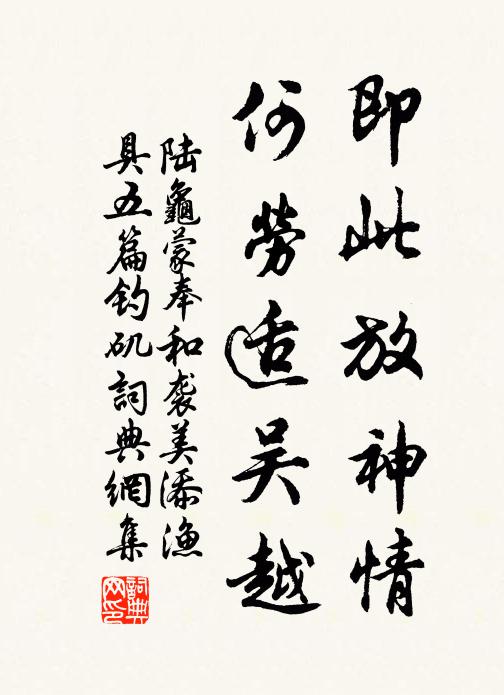 即此放神情
何劳适吴越
陆龜蒙奉和袭美添渔
具五篇钓矶詞典網集
詞典网印